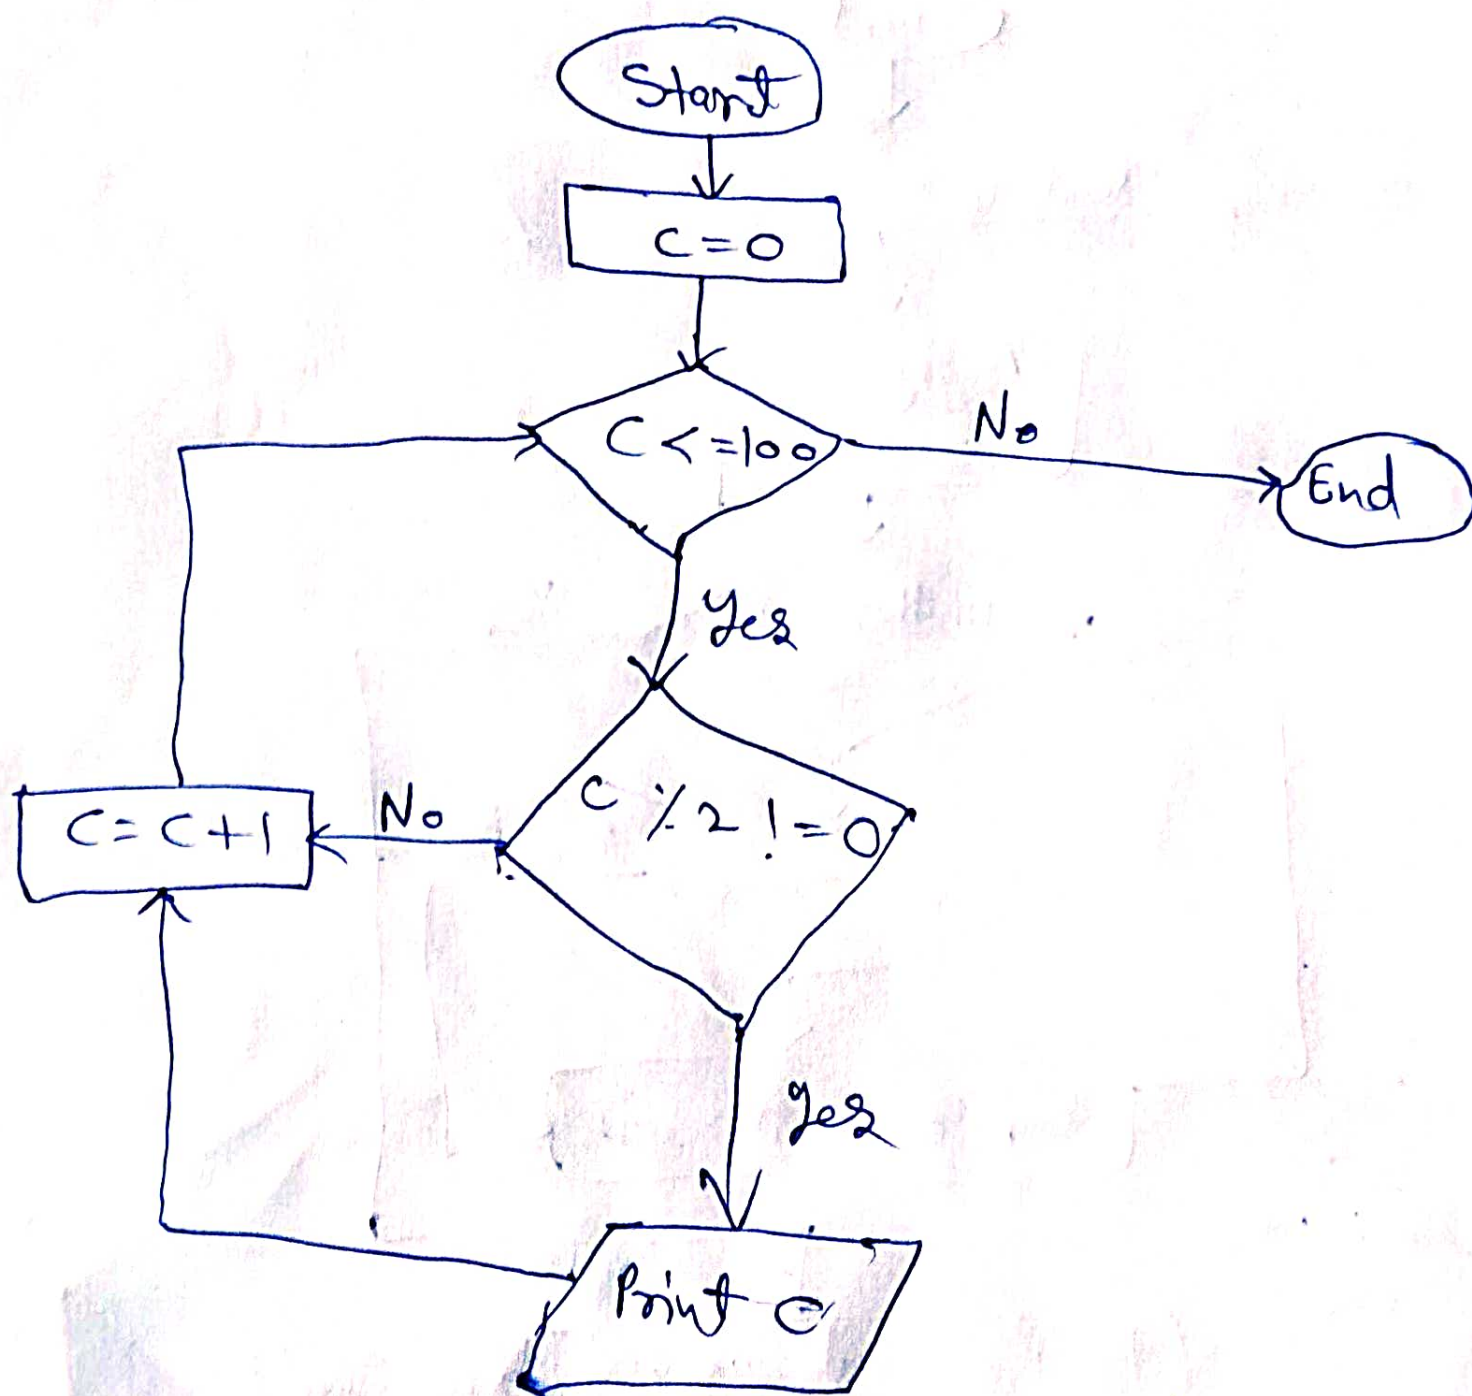 Start
C = 0
C <= 100
No
End
Yes
C % 2 != 0
No
C = C + 1
Yes
Print C